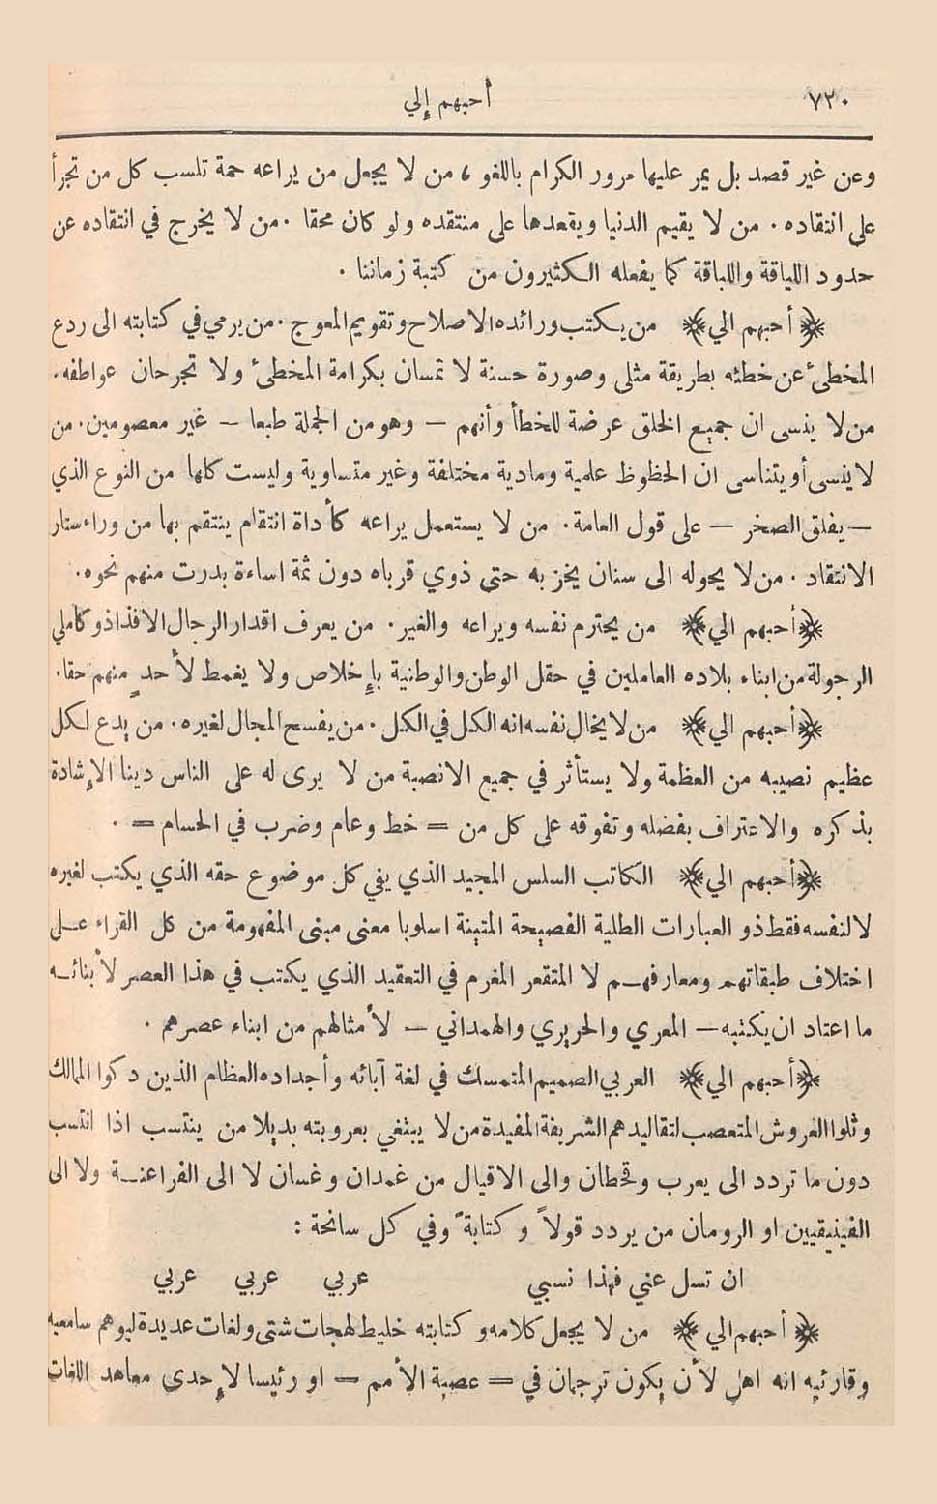 ٧٢٠
أحبهم إلي
وعن غير قصد بل يمر عليها مرور الكرام باللغو ، من لا يجعل من يراعه حمة تلسب كل من تجرأ
على انتقاده . من لا يقيم الدنيا ويقعدها على منتقده ولو كان محقا . من لا يخرج في انتقاده عن
حدود اللياقة واللباقة كما يفعله الكثيرون من كتبة زماننا .
﴿ أحبهم الي ﴾ من يكتب ورائده الاصلاح وتقويم المعوج . من يرمي في كتابته الى ردع
المخطئ عن خطئه بطريقة مثلى وصورة حسنة لا تمسان بكرامة المخطئ ولا تجرحان عواطفه .
من لا ينسى ان جميع الخلق عرضة للخطأ وأنهم — وهو من الجملة طبعا — غير معصومين . من
لا ينسى أو يتناسى ان الحظوظ علمية ومادية مختلفة وغير متساوية وليست كلها من النوع الذي
— يفلق الصخر — على قول العامة . من لا يستعمل يراعه كأداة انتقام ينتقم بها من وراء ستار
الانتقاد . من لا يحوله الى سنان يخز به حتى ذوي قرباه دون ثمة اساءة بدرت منهم نحوه .
﴿ أحبهم الي ﴾ من يحترم نفسه ويراعه والغير . من يعرف اقدار الرجال الافذاذ وكاملي
الرجولة من ابناء بلاده العاملين في حقل الوطن والوطنية بإخلاص ولا يغمط لأحد منهم حقا .
﴿ أحبهم الي ﴾ من لا يخال نفسه انه الكل في الكل . من يفسح المجال لغيره . من يدع لكل
عظيم نصيبه من العظمة ولا يستأثر في جميع الانصبة من لا يرى له على الناس دينا الإشادة
بذكره والاعتراف بفضله وتفوقه على كل من = خط وعام وضرب في الحسام = .
﴿ أحبهم الي ﴾ الكاتب السلس المجيد الذي يفي كل موضوع حقه الذي يكتب لغيره
لا لنفسه فقط ذو العبارات الطلية الفصيحة المتينة اسلوبا معنى مبنى المفهومة من كل القراء على
اختلاف طبقاتهم ومعارفهم لا المتقعر المغرم في التعقيد الذي يكتب في هذا العصر لأبنائه
ما اعتاد ان يكتبه — المعري والحريري والهمداني — لأمثالهم من ابناء عصرهم .
﴿ أحبهم الي ﴾ العربي الصميم المتمسك في لغة آبائه وأجداده العظام الذين دكوا الممالك
وثلوا العروش المتعصب لتقاليدهم الشريفة المفيدة من لا يبتغي بعروبته بديلا من ينتسب اذا انتسب
دون ما تردد الى يعرب وقحطان والى الاقيال من غمدان وغسان لا الى الفراعنة ولا الى
الفينيقيين او الرومان من يردد قولاً وكتابةً وفي كل سانحة :
ان تسل عني فهذا نسبي عربي عربي عربي
﴿ أحبهم الي ﴾ من لا يجعل كلامه وكتابته خليط لهجات شتى ولغات عديدة ليوهم سامعيه
وقارئيه انه اهل لأن يكون ترجمان في = عصبة الأمم — او رئيسا لإحدى معاهد اللغات